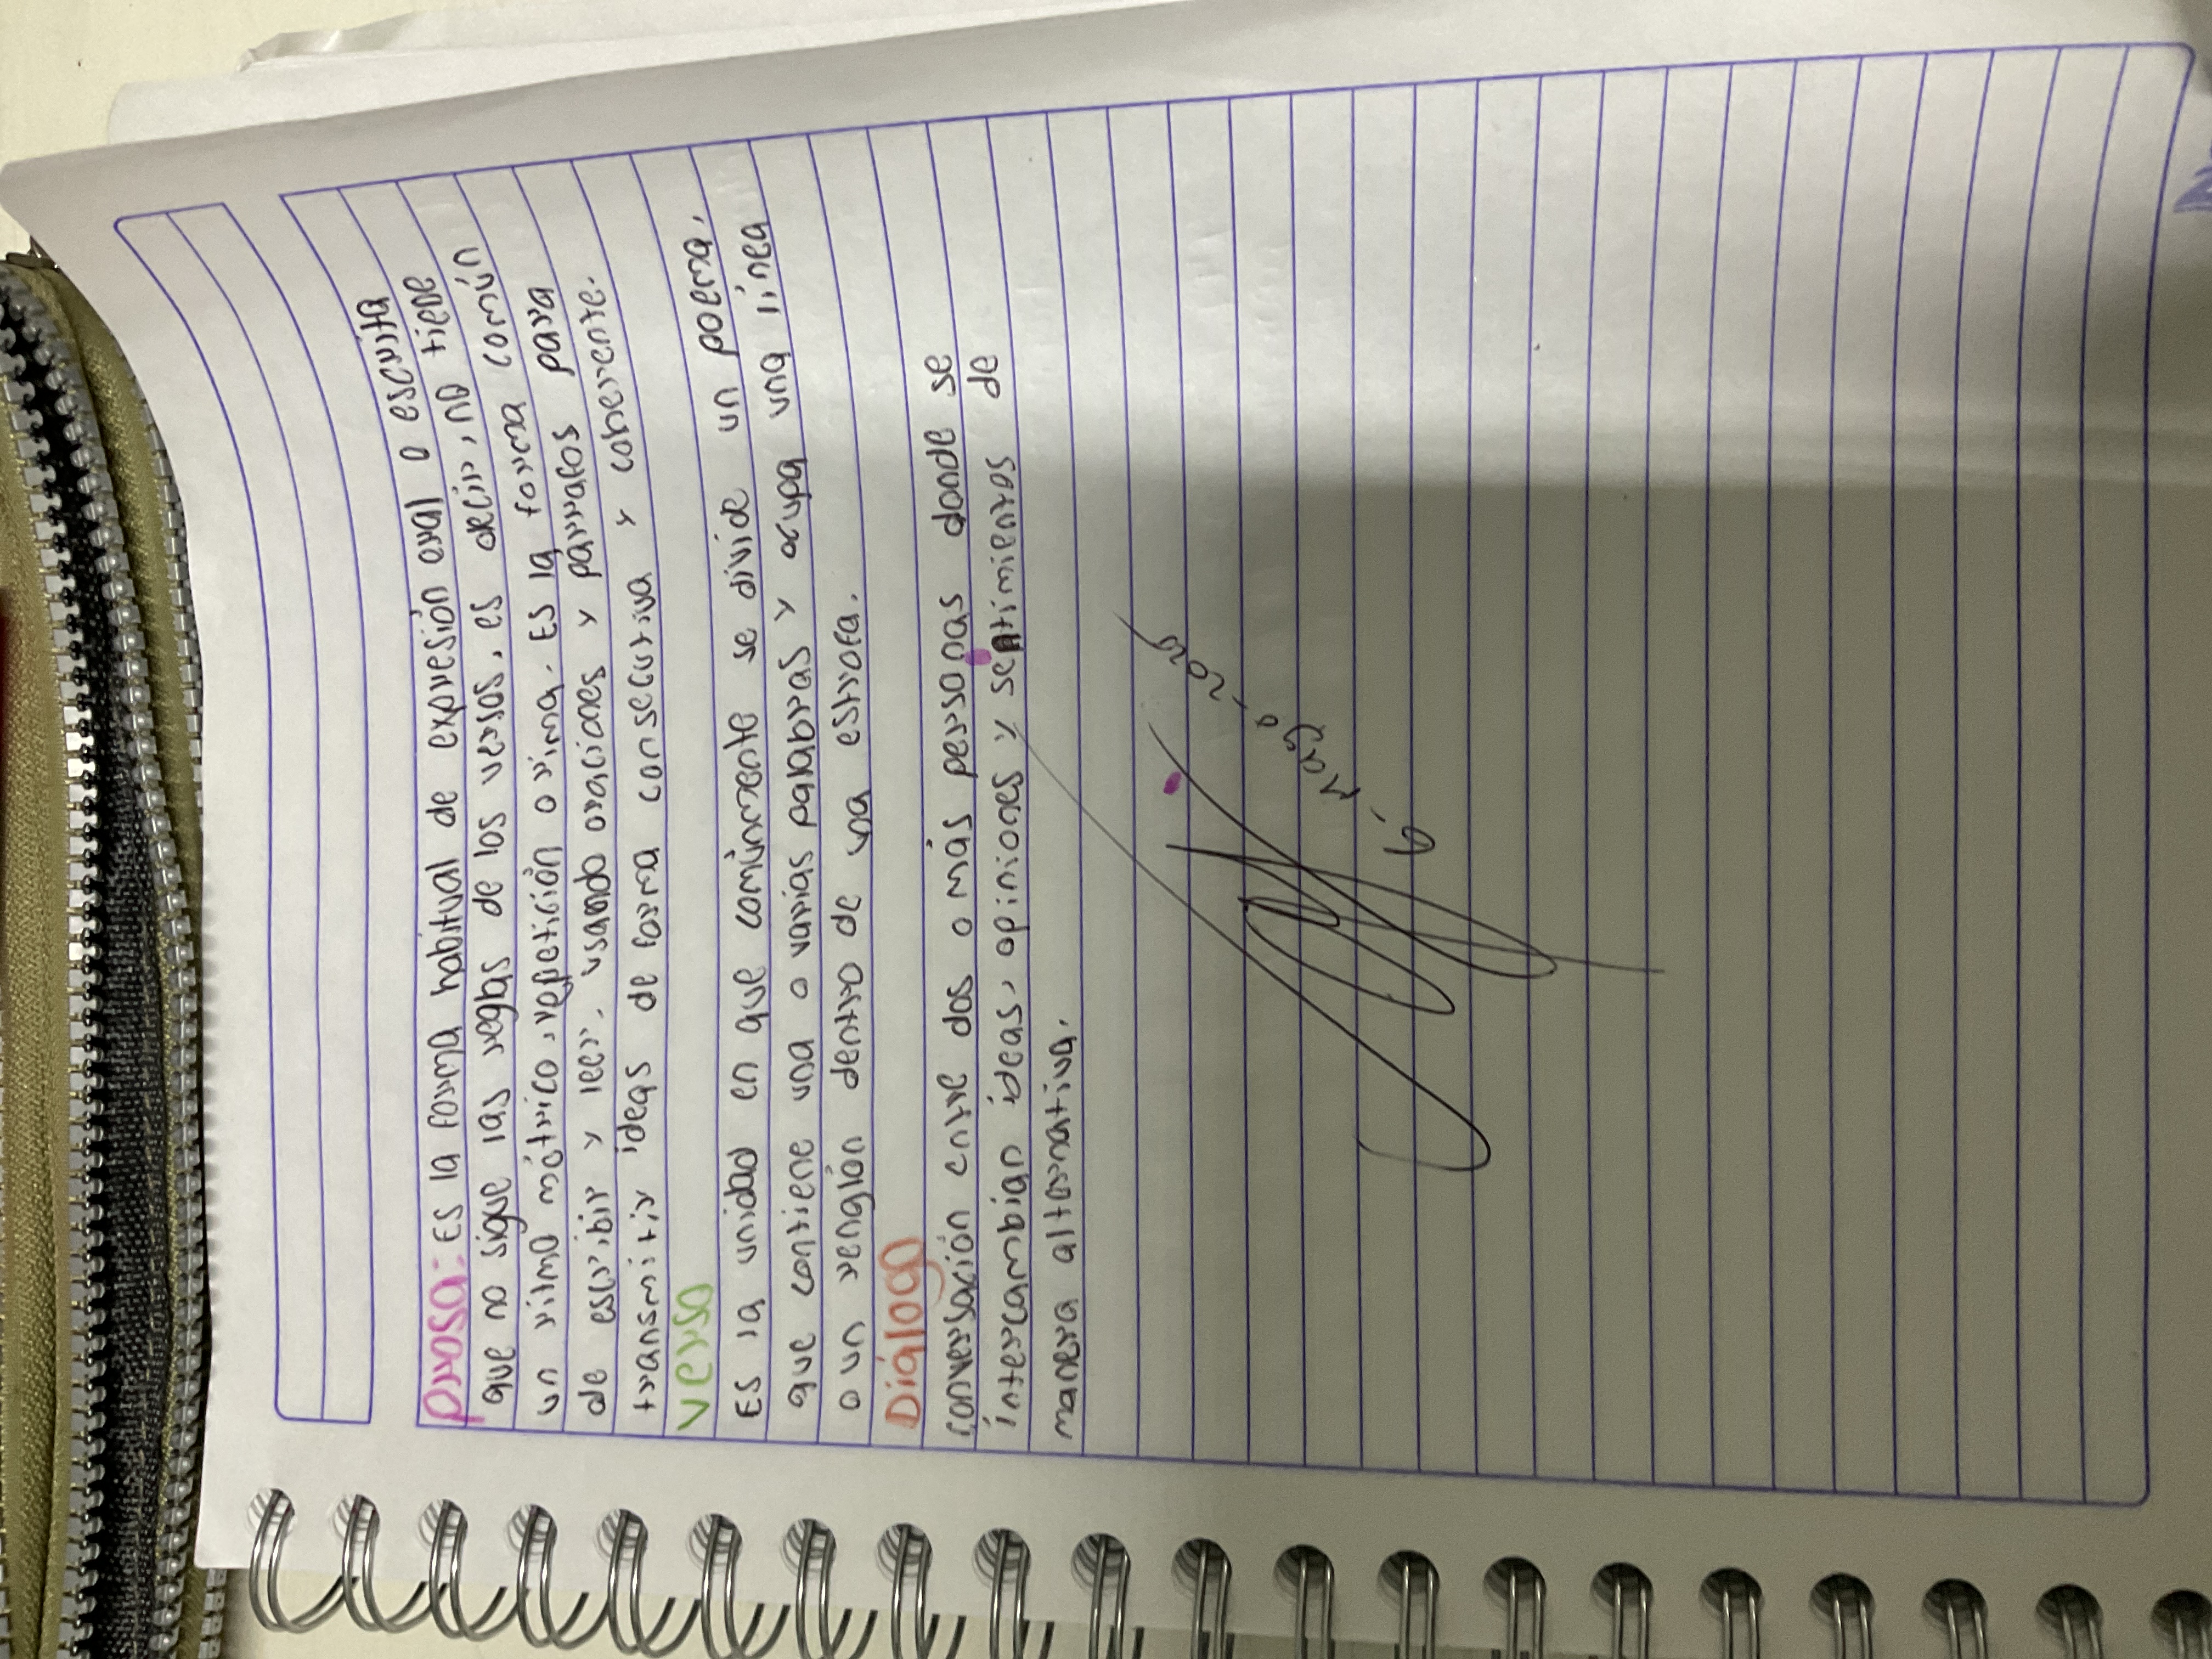 Prosa: Es la forma habitual de expresión oral o escrita
que no sigue las reglas de los versos, es decir, no tiene
un ritmo métrico, repetición o rima. Es la forma común
de escribir y leer, usando oraciones y parrafos para
transmitir ideas de forma consecutiva y coherente.
Verso
Es la unidad en que comúnmente se divide un poema,
que contiene una o varias palabras y ocupa una línea
o un renglón dentro de una estrofa.
Diálogo
conversación entre dos o más personas donde se
intercambian ideas, opiniones y sentimientos de
manera alternativa.
6-Mayo-